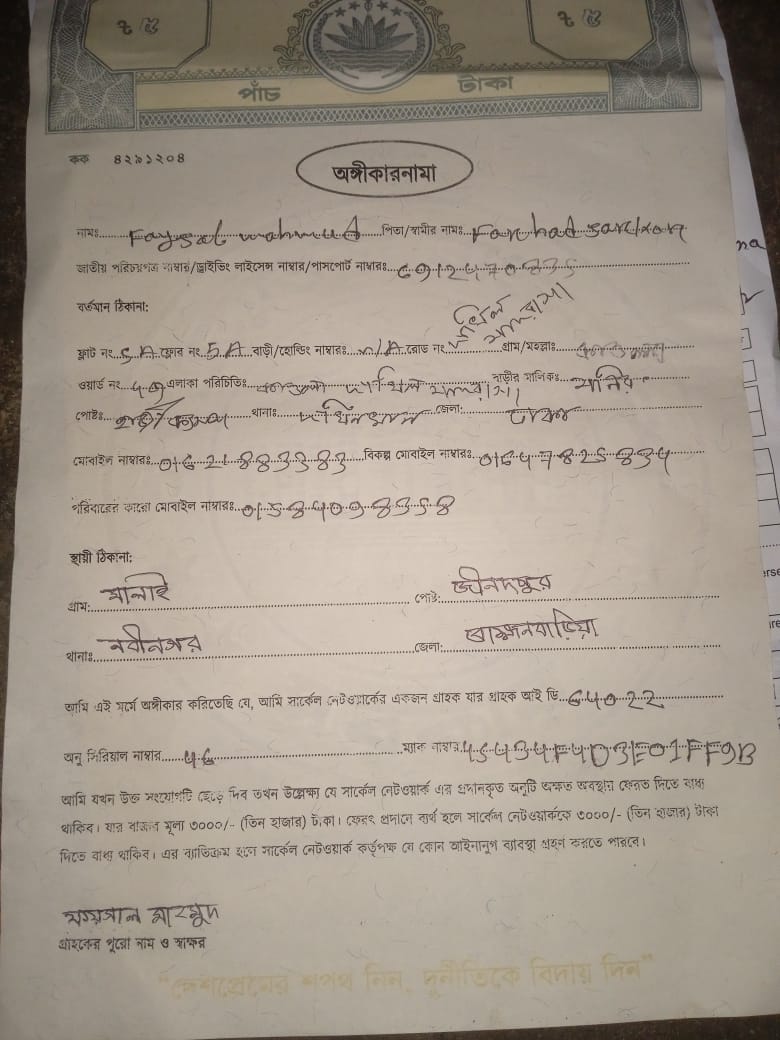 ৳ ৫ ৳ ৫
পাঁচ টাকা
কক ৪২৯১২০৪
অঙ্গীকারনামা
নামঃ Faysal mahmud পিতা/স্বামীর নামঃ Farhad sarkar
জাতীয় পরিচয়পত্র নাম্বার/ড্রাইভিং লাইসেন্স নাম্বার/পাসপোর্ট নাম্বারঃ
বর্তমান ঠিকানা:
ফ্লাট নং 5A ফ্লোর নং 5A বাড়ী/হোল্ডিং নাম্বারঃ রোড নং দাখিল মাদ্রাসা গ্রাম/মহল্লাঃ
ওয়ার্ড নং এলাকা পরিচিতিঃ দাখিল মাদ্রাসা বাড়ীর মালিকঃ মনির
পোষ্টঃ থানাঃ জেলা: ঢাকা
মোবাইল নাম্বারঃ 01621883383 বিকল্প মোবাইল নাম্বারঃ 01647825834
পরিবারের কারো মোবাইল নাম্বারঃ 01584098358
স্থায়ী ঠিকানা:
গ্রাম: মালাই পোষ্ট: জীনদপুর
থানাঃ নবীনগর জেলা: ব্রাহ্মনবাড়িয়া
আমি এই মর্মে অঙ্গীকার করিতেছি যে, আমি সার্কেল নেটওয়ার্কের একজন গ্রাহক যার গ্রাহক আই ডি 64022
অনু সিরিয়াল নাম্বার 46 ম্যাক নাম্বার 45434F4D3E01FF9B
আমি যখন উক্ত সংযোগটি ছেড়ে দিব তখন উল্লেক্ষ্য যে সার্কেল নেটওয়ার্ক এর প্রদানকৃত অনুটি অক্ষত অবস্থায় ফেরত দিতে বাধ্য
থাকিব। যার বাজার মূল্য ৩০০০/- (তিন হাজার) টাকা। ফেরৎ প্রদানে ব্যর্থ হলে সার্কেল নেটওয়ার্ককে ৩০০০/- (তিন হাজার) টাকা
দিতে বাধ্য থাকিব। এর ব্যতিক্রম হলে সার্কেল নেটওয়ার্ক কর্তৃপক্ষ যে কোন আইনানুগ ব্যবস্থা গ্রহন করতে পারবে।
ফয়সাল মাহমুদ
গ্রাহকের পুরো নাম ও স্বাক্ষর
"দেশপ্রেমের শপথ নিন, দুর্নীতিকে বিদায় দিন"